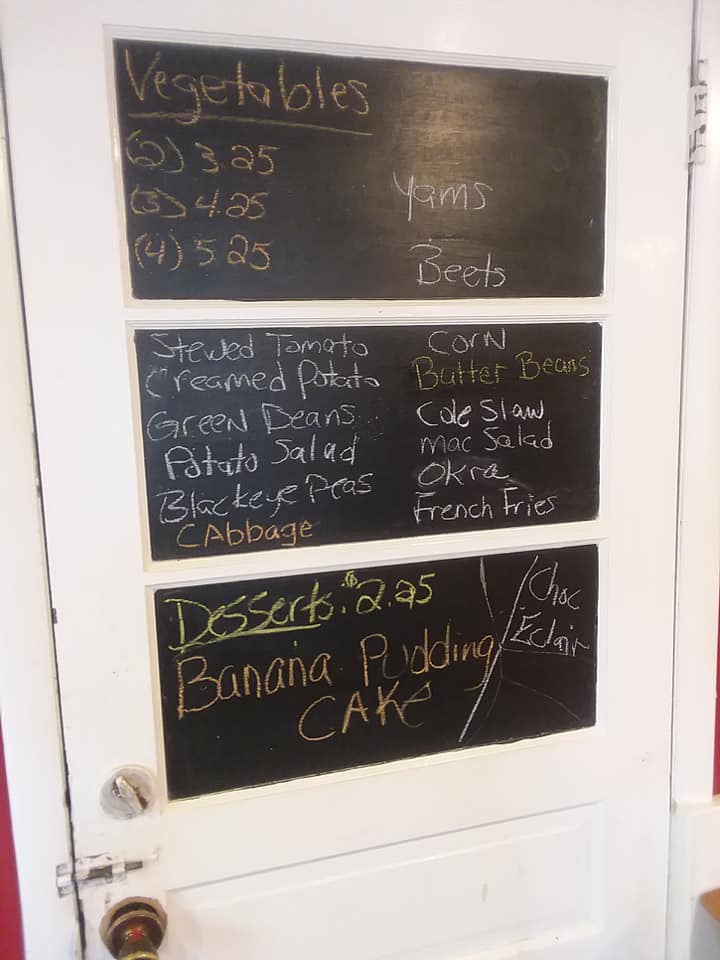 Vegetables
(2) 3.25
(3) 4.25
(4) 5 25
Yams
Beets
Stewed Tomato
Creamed Potato
Green Beans
Potato Salad
Blackeye Peas
CAbbage
Corn
Butter Beans
Cole Slaw
Mac Salad
Okra
French Fries
Desserts: $2.25
Banana Pudding
CAKe
Choc
Eclair